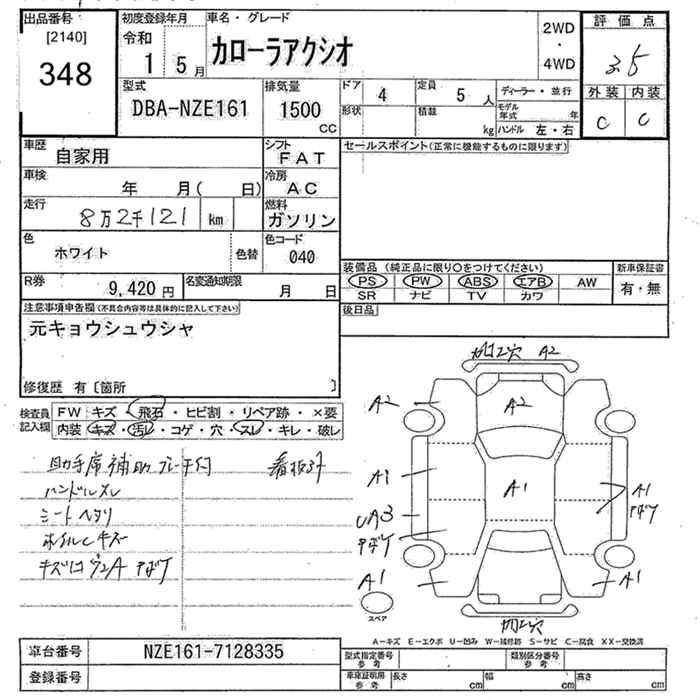 出品番号 [2140] 348
初度登録年月 令和 1 5月
車名・グレード カローラアクシオ
2WD ・ 4WD
評価点 3.5
外装 内装
C C
型式 DBA-NZE161
排気量 1500 cc
ドア 4
定員 5 人
形状
積載 kg
ディーラー・並行
モデル年式 年
ハンドル 左・右
車歴 自家用
シフト FAT
セールスポイント(正常に機能するものに限ります)
車検 年 月( 日)
冷房 AC
走行 8万2千121 km
燃料 ガソリン
色 ホワイト
色替
色コード 040
R券 9,420円
名変通知期限 月 日
装備品(純正品に限り○をつけてください)
PS PW ABS エアB AW
SR ナビ TV カワ
新車保証書
有・無
後日品
注意事項申告欄(不具合内容等は具体的に記入して下さい)
元キョウシュウシャ
修復歴 有〔箇所 〕
検査員記入欄
FW キズ・飛石・ヒビ割・リペア跡・×要
内装 キズ・汚レ・コゲ・穴・スレ・キレ・破レ
助手席補助ブレーキ付 看板跡
ハンドルスレ
シートヘタリ
ホイルCキズ
加工穴 A2
A2
A2
A1
A1
A1
ヤボケ
UA3
ヤボケ
A1
A1
加工穴
スペア
A-キズ E-エクボ U-凹み W-補修跡 S-サビ C-腐食 XX-交換済
車台番号 NZE161-7128335
登録番号
型式指定番号 参考
類別区分番号 参考
車庫証明用 参考
長さ cm
幅 cm
高さ cm